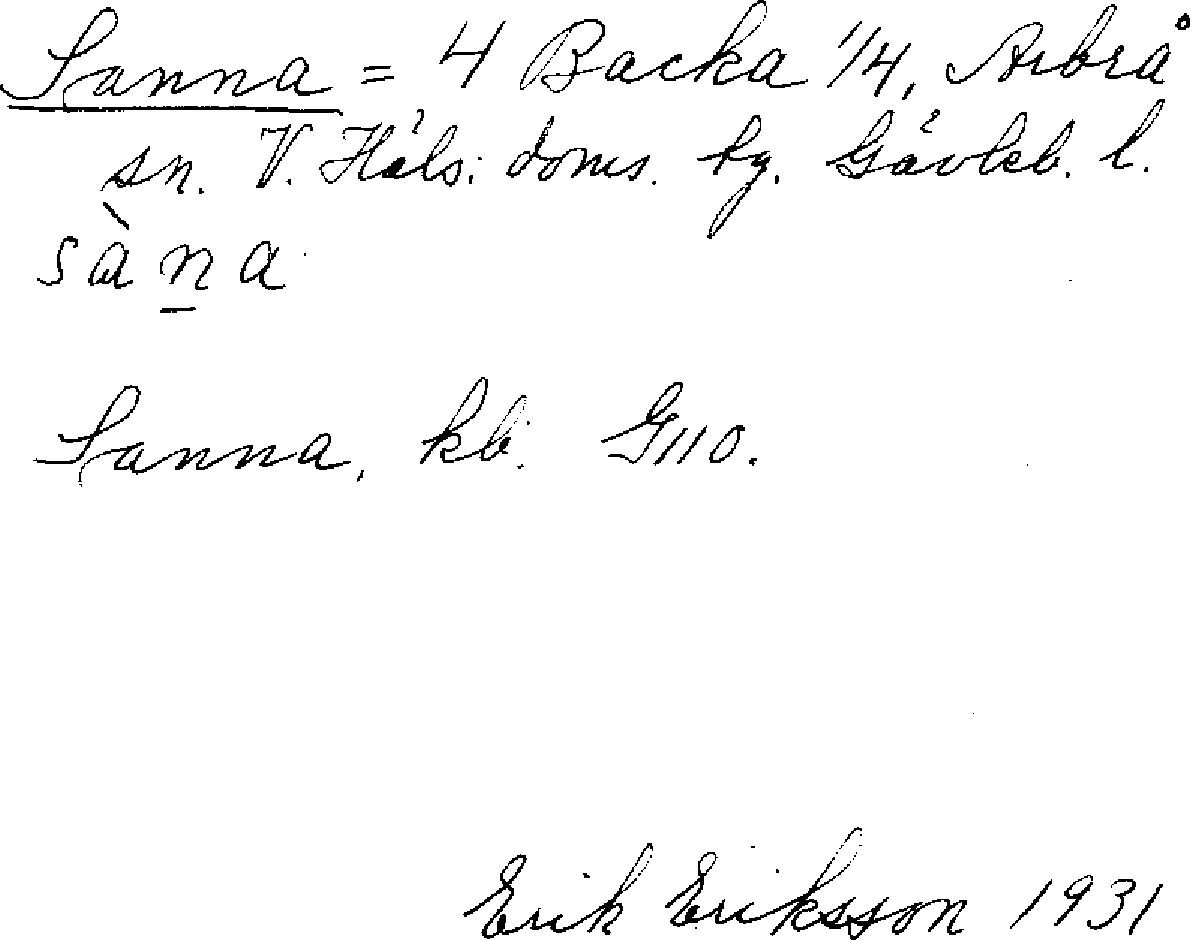 Sanna = 4 Backa 1/4, Arbrå
sn. V. Häls. doms. hg. Gävleb. l.
sàna
Sanna, kb. G110.
Erik Eriksson 1931